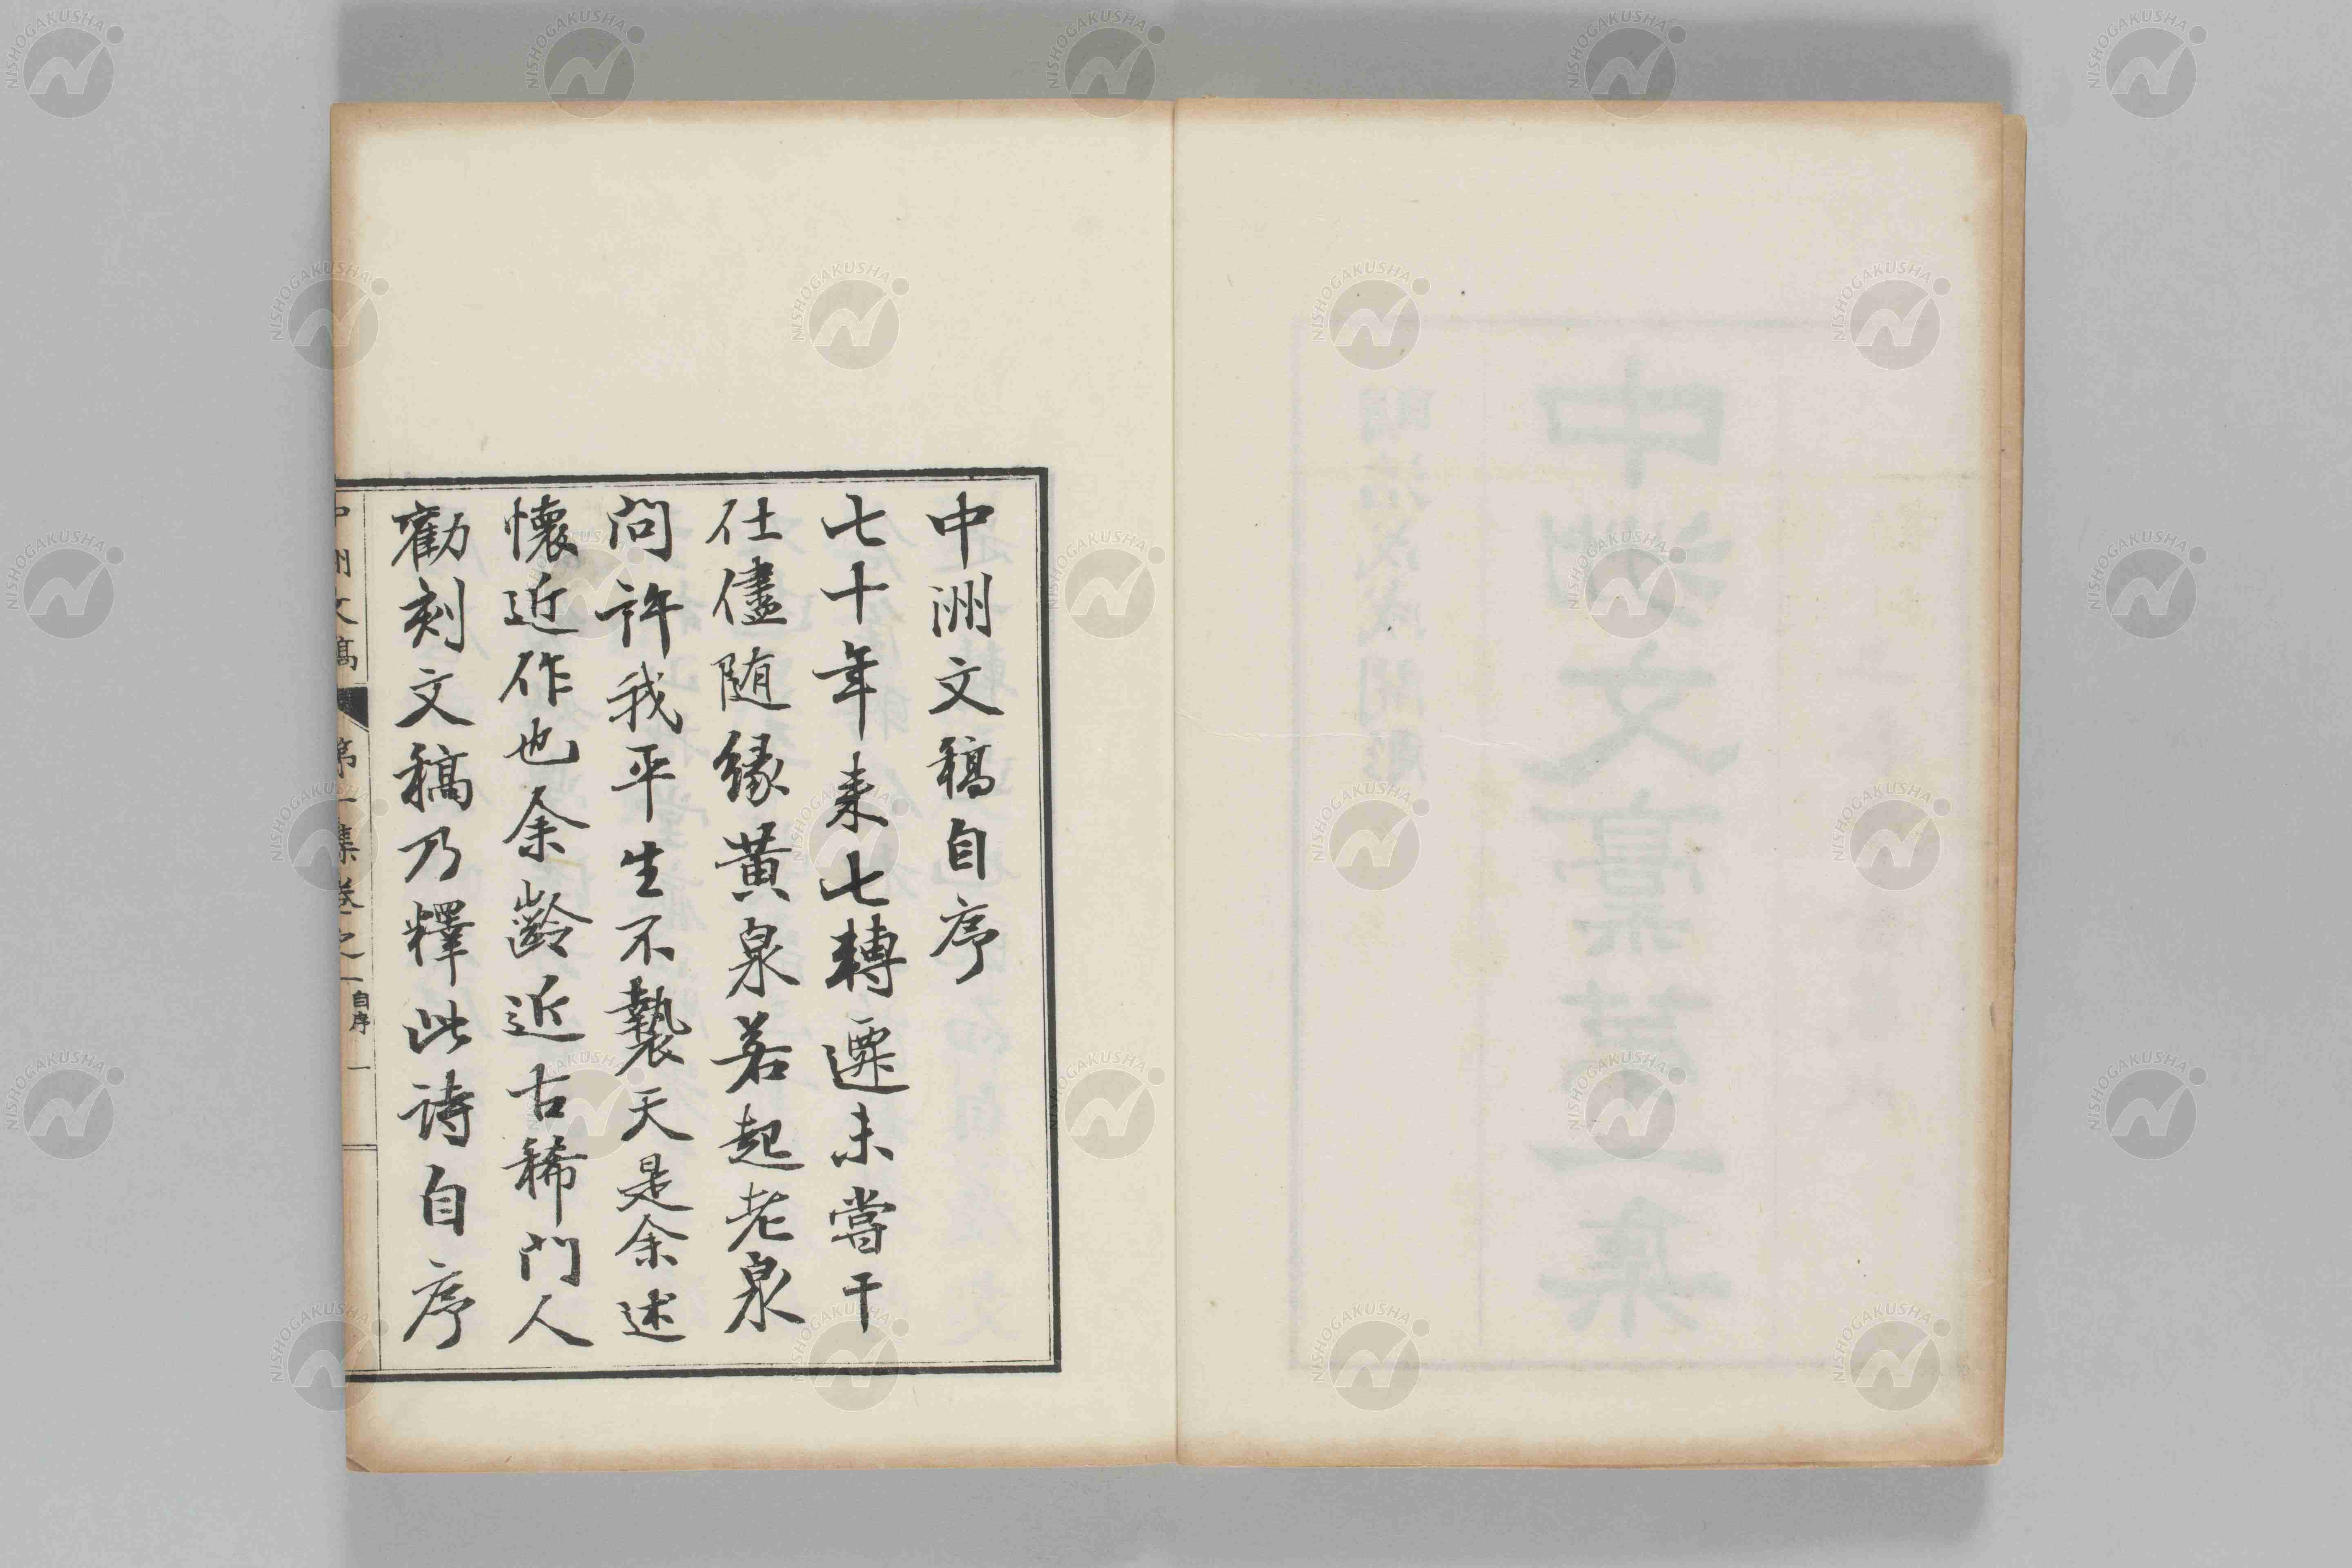 中洲文稿自序
七十年来七轉遷未嘗干
仕儘随縁黄泉若起老泉
問許我平生不褻天是余述
懐近作也余齡近古稀門人
勸刻文稿乃釋此詩自序
中洲文稿 第一集卷之一 自序 一
NISHOGAKUSHA